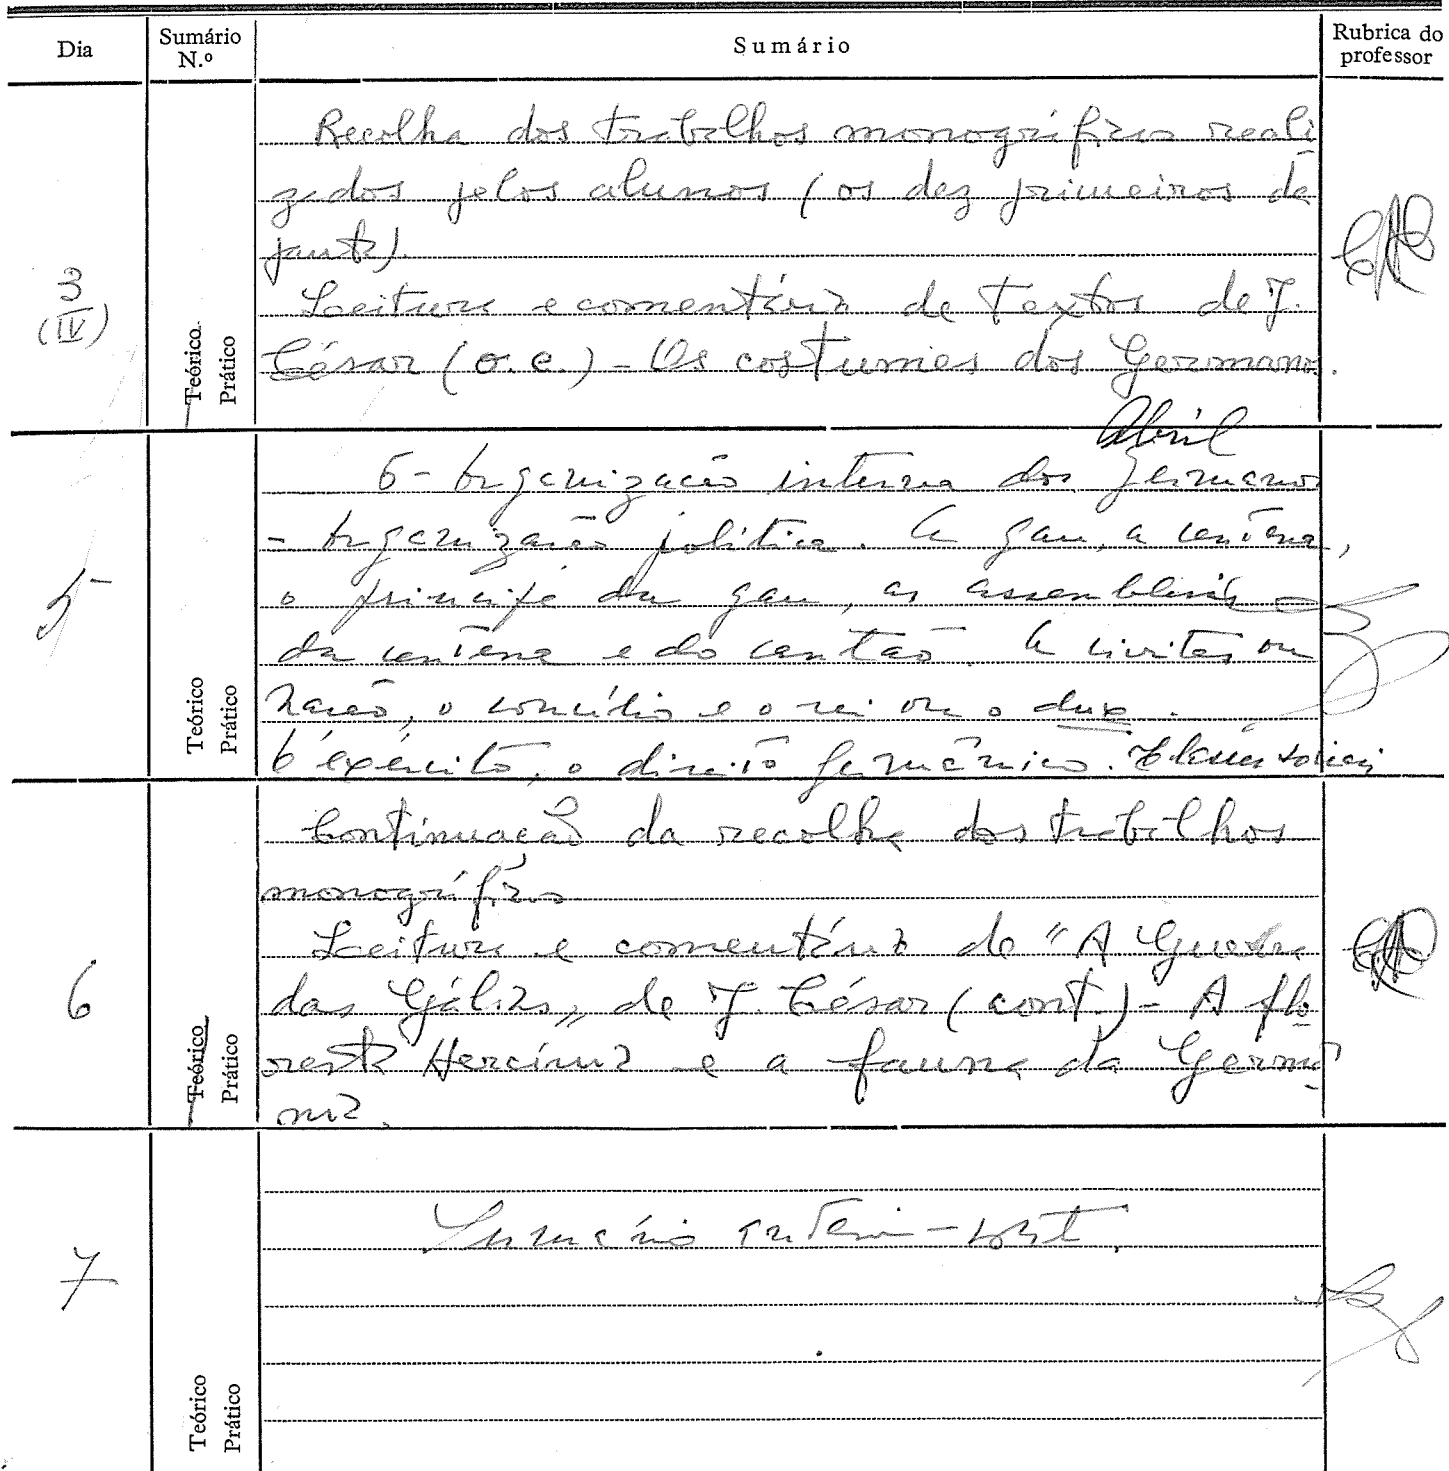 Dia Sumário N.º Sumário Rubrica do professor
3
(IV)
Teórico
Prático
Recolha dos trabalhos monográficos reali
zados pelos alunos (os dez primeiros da
pauta).
Leitura e comentário de textos de J.
César (o. c.) - Os costumes dos Germanos.
Abril
5
Teórico
Prático
6- Organização interna dos germanos
- Organização política. A gau, a centena,
o príncipe da gau, as assembleias
da centena e do cantão. A civitas ou
nação, o concílio e o rei ou o dux.
O exército, o direito germânico. Classes sociais
6
Teórico
Prático
Continuação da recolha dos trabalhos
monográficos
Leitura e comentário de "A Guerra
das Gálias„ de J. César (cont.) - A flo
resta Hercínia e a fauna da Germâ
nia.
7
Teórico
Prático
Sumário anterior - cont.